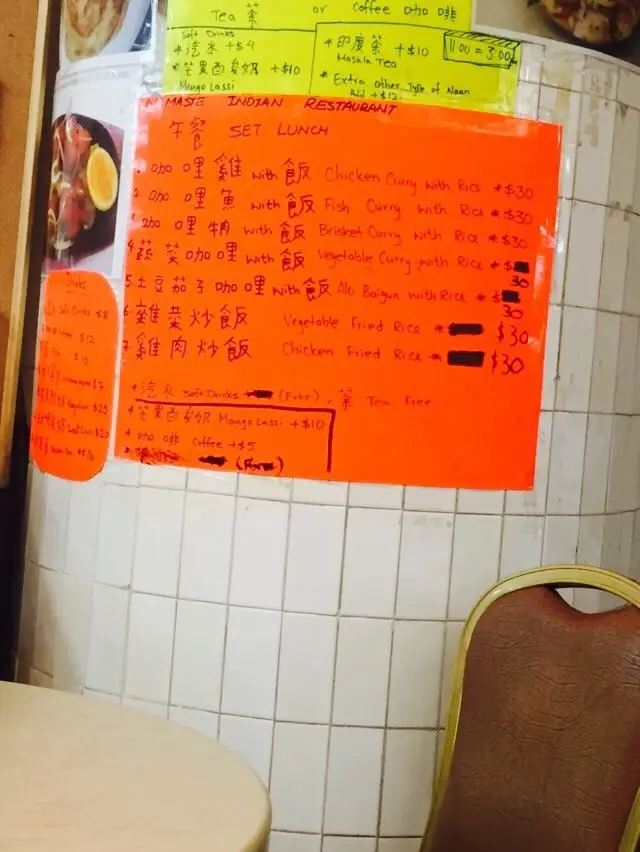 Tea 茶 or Coffee 咖啡
Soft Drinks
*汽水 +$4
*芒果西多奶 +$10
Mango Lassi
*印度茶 +$10
Masala Tea
*Extra Other Type of Naan
Add +$12
11:00 = 3:00
NAMASTE INDIAN RESTAURANT
午餐 SET LUNCH
1. 咖哩雞 with 飯 Chicken Curry with Rice *$30
2. 咖哩魚 with 飯 Fish Curry with Rice *$30
3. 咖哩牛肉 with 飯 Brisket Curry with Rice *$30
4. 蔬菜咖哩 with 飯 Vegetable Curry with Rice *$30
5. 土豆茄子咖哩 with 飯 Alo Baigun with Rice *$30
6. 雜菜炒飯 Vegetable Fried Rice * $30
7. 雞肉炒飯 Chicken Fried Rice * $30
*汽水 Soft Drinks (Free), 茶 Tea Free
*芒果西多奶 Mango Lassi +$10
*咖啡 Coffee +$5
Drinks
Soft Drinks $8
$12
$10
$7
$25
$20